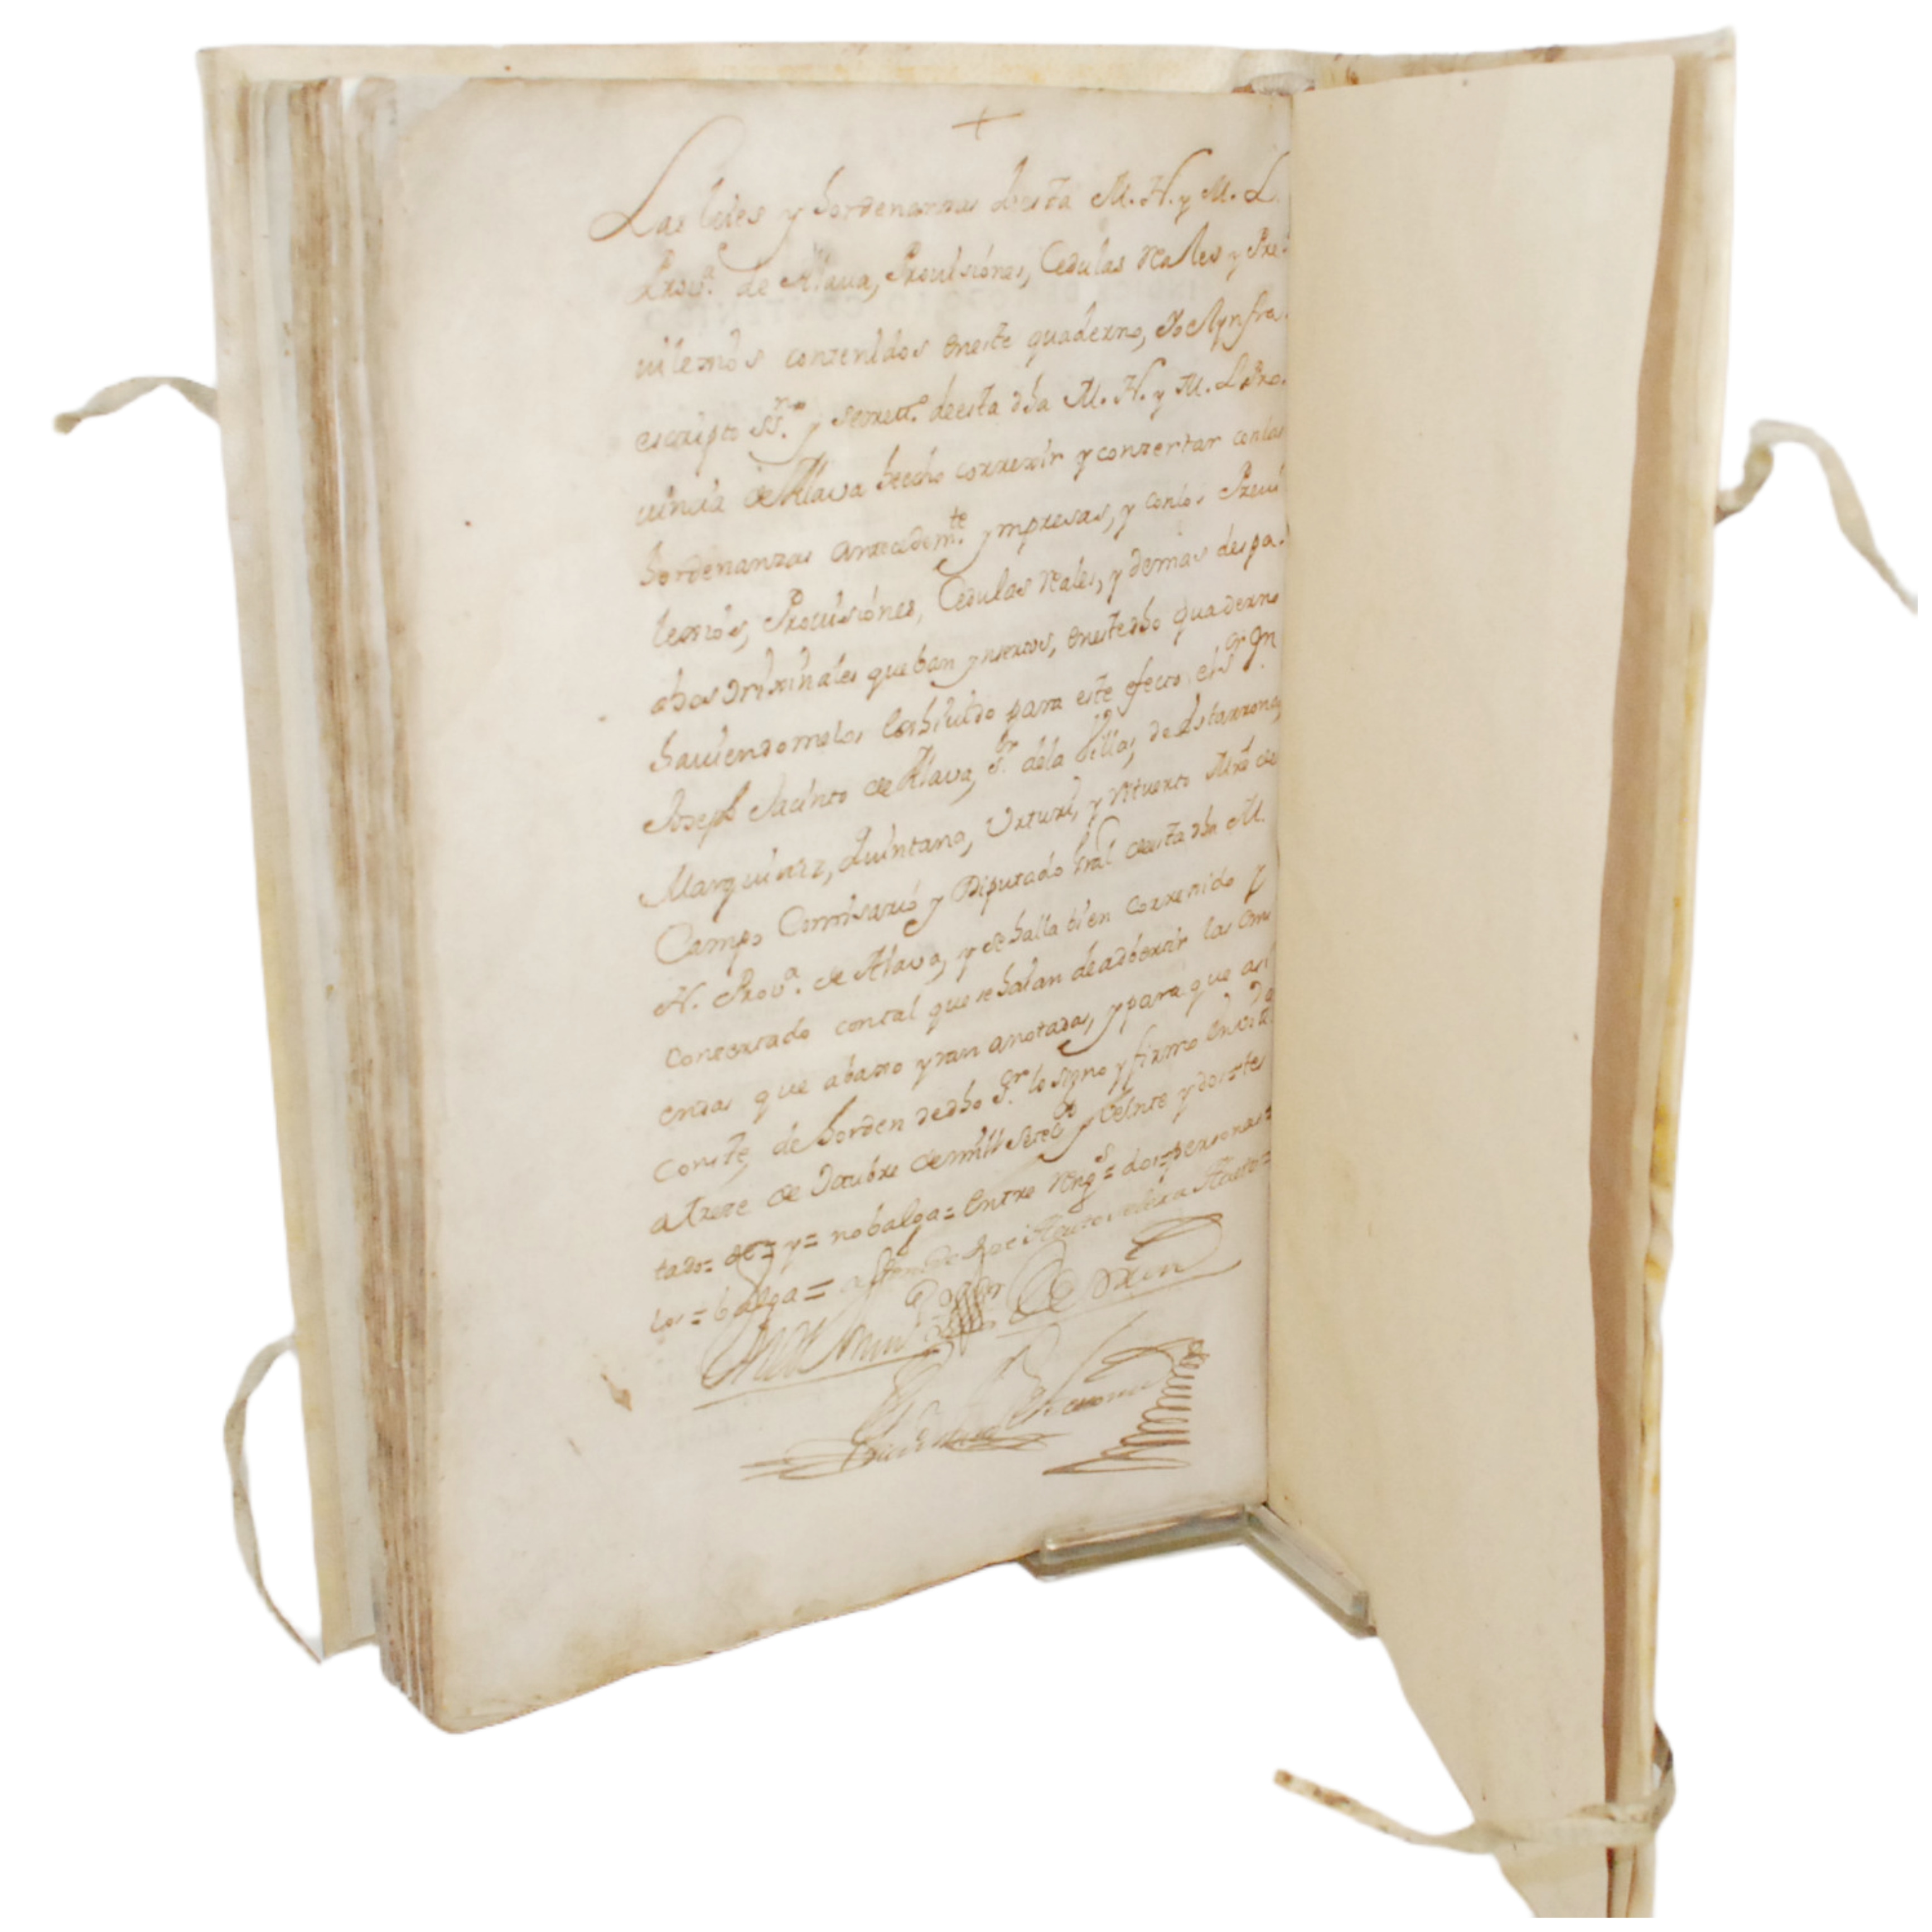 +
Las leies y hordenanzas de esta M. H. y M. L.
Prova. de Alava, Provisiónes, Cedulas reales y Pre
vilexios contenidos eneste quaderno, Yo el ynfra
escripto SSno. y secrett.o de esta dha M. H. y M. L. Pro
vincia de Alava hecho correxir y conzertar conlas
hordenanzas antecedemte. ympresas, y conlos Previ
lexiós, Provisiónes, Cedulas reales, y demas despa
chos orixinales que ban ynsertos, eneste dho quaderno
haviendomelos exhividó para este efecto, el Sr. Dn
Joseph Jacinto de Alava, Sr. dela Villas, de Estarrona,
Marquinez, Quintana, Urturi, y Muerto Mró de
Campo Comisarió y Diputado Gral de esta dha M.
N. Prova. de Alava, y se halla bien correxido y
conzertado contal que se halan de adbertir las enmi
endas que abaxo yran anotadas, y para que así
conste, de horden de dho Sr. lo signo y firmo en Vitta
a treze de Octubre de mill setecos y veinte y dos = te
tado = de = y = no balga = Entre rengs = dos = personas =
los = balga =